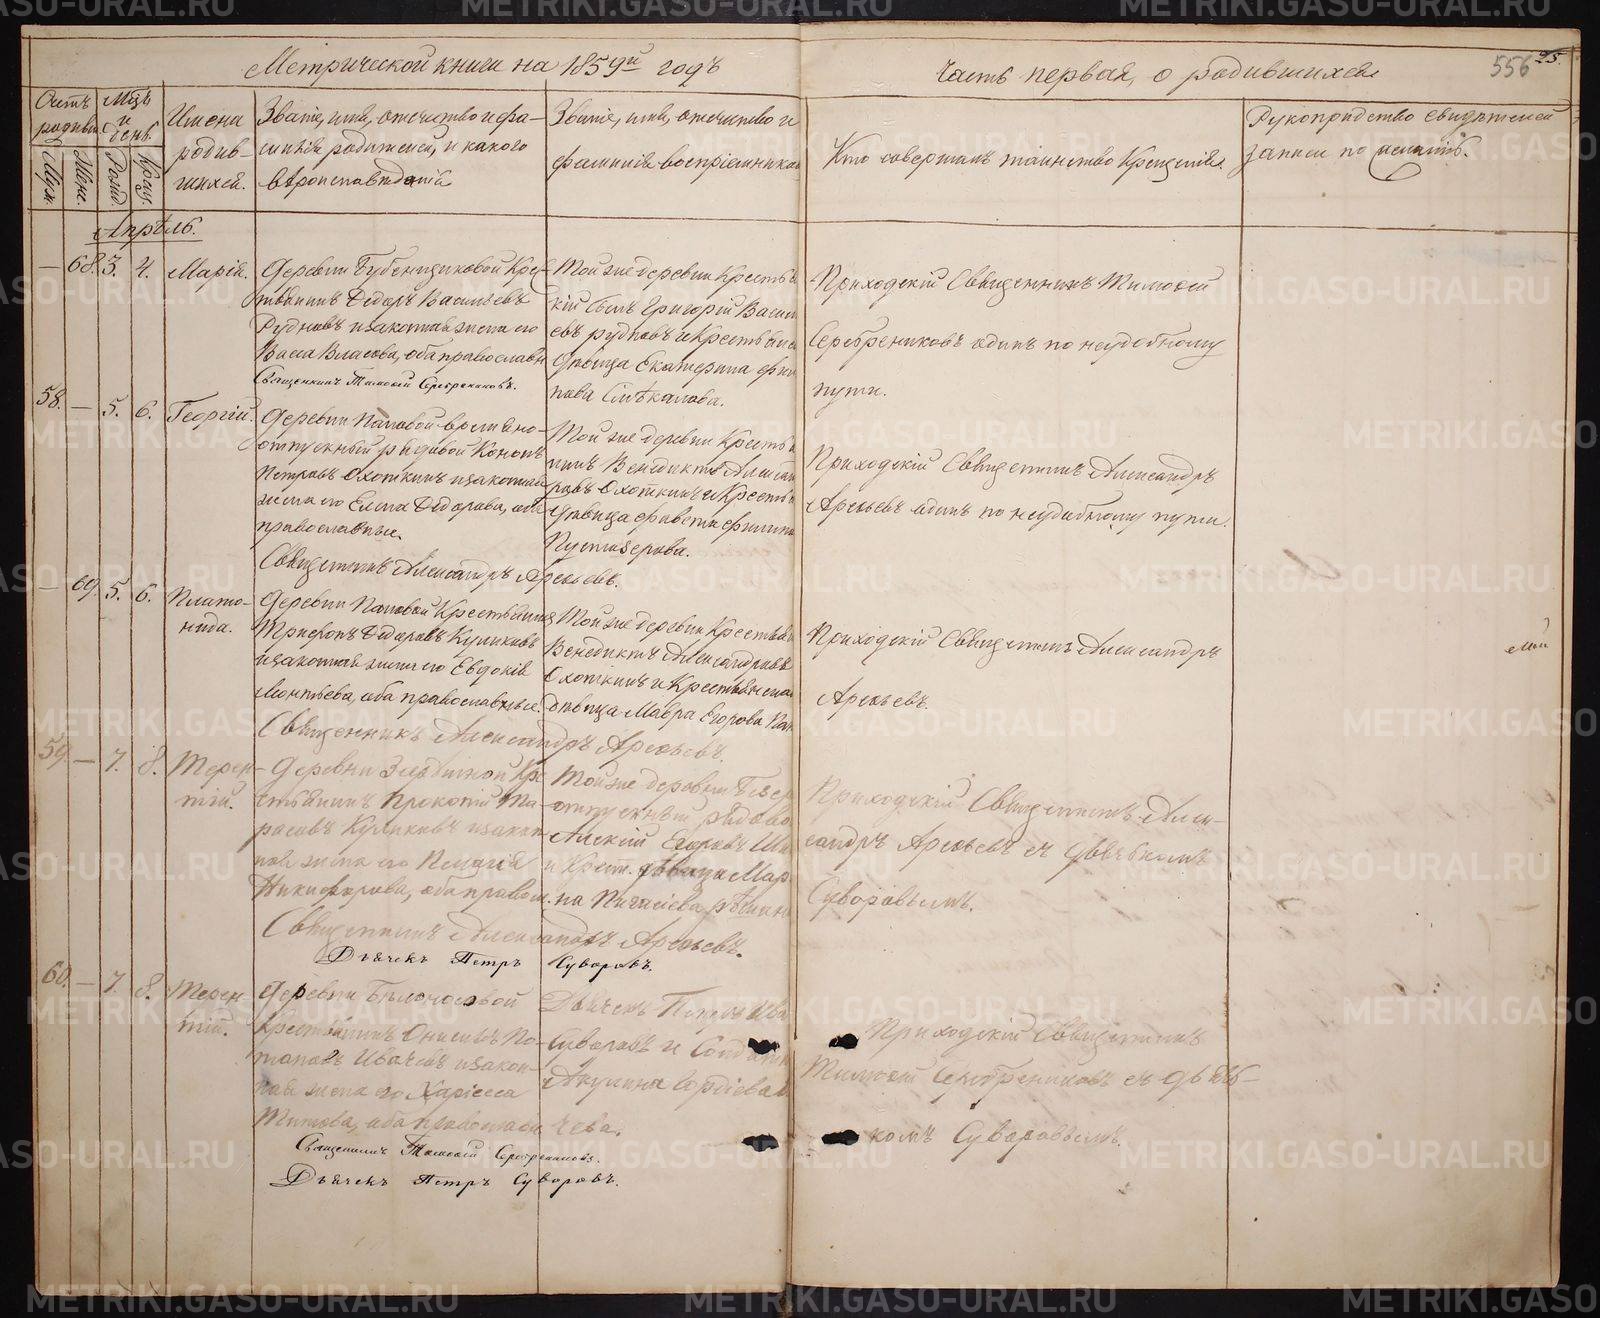 Метрической книги на 1859й годъ
Часть первая, о родившихся
556
25.
Счетъ родивш.
Муж.
Женс.
Мѣсц. и день.
Рожд.
Крещ.
Имена
родив-
шихся.
Званіе, имя, отчество и фа-
милія родителей, и какого
вѣроисповѣданія
Званіе, имя, отчество и
фамилія воспріемниковъ
Кто совершалъ таинство Крещенія.
Рукоприкладство свидѣтелей
записи по желанію.
Апрѣль.
— 68. 3. 4. Марія.
Деревни Бубенщиковой Кре-
стьянинъ Ѳедоръ Васильевъ
Рудновъ и законная жена его
Васса Власова, оба православн
Священникъ Тимоѳей Серебрениковъ.
Той же деревни Крестья
кій сынъ Григорій Васил
евъ Рудновъ и Крестьянс
дѣвица Екатерина Фи
пова
Приходскій Священникъ Тимоѳей
Серебрениковъ одинъ по неудобному
пути.
58. — 5. 6. Георгій.
Деревни Паловой временно-
отпускный рядовой Кононъ
Петровъ Охоткинъ и законная
жена его Елена Ѳедорова, оба
православные.
Священникъ Александръ Арефьевъ.
Той же деревни Крестья
нинъ Венедиктъ Алексан
ровъ Охоткинъ и Крестья
дѣвица Филипп
Пустозерова.
Приходскій Священникъ Александръ
Арефьевъ одинъ по неудобному пути.
— 69. 5. 6. Плато-
нида.
Деревни Паловой Крестьянинъ
Трифонъ Ѳедоровъ Куликовъ
и законная жена его Евдокія
Леонтьева, оба православные.
Священникъ Александръ Арефьевъ.
Той же деревни Крестьян
Венедиктъ Александровъ
Охоткинъ и Крестьянская
дѣвица Мавра Егорова
Приходскій Священникъ Александръ
Арефьевъ.
59. — 7. 8. Терен-
тій.
Деревни Кре
стьянинъ Прокопій Та-
расовъ Куликовъ и закон
ная жена его Пелагія
Никифорова, оба правосл.
Священникъ Александръ Арефьевъ.
Дьячекъ Петръ Суворовъ.
Той же деревни
отпускный рядово
Алексій Егоровъ
и Крест. дѣвица Мар
на
Приходскій Священникъ Алек-
сандръ Арефьевъ съ дьячкомъ
Суворовымъ.
60. — 7. 8. Терен-
тій.
Деревни Бѣлоносовой
Крестьянинъ Онисимъ По-
таповъ и закон-
ная жена его Хариесса
Титова, оба православн
Священникъ Тимоѳей Серебрениковъ.
Дьячекъ Петръ Суворовъ.
Дьячекъ Петръ Ива
Суворовъ и Солдатк
Акулина Гордіева
чева.
Приходскій Священникъ
Тимоѳей Серебрениковъ съ дьяч-
комъ Суворовымъ.
METRIKI.GASO-URAL.RU